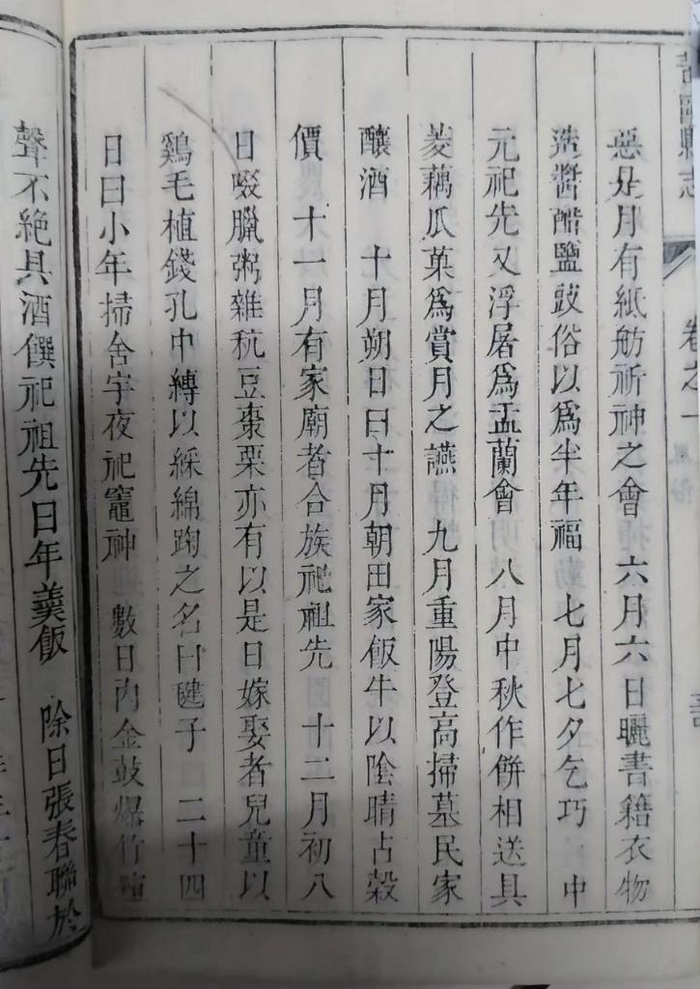 縣志
卷之一
風俗
惡是月有紙舫祈神之會 六月六日曬書籍衣物
造醬醋鹽豉俗以爲半年福 七月七夕乞巧 中
元祀先又浮屠爲盂蘭會 八月中秋作餅相送具
菱藕瓜菓爲賞月之讌 九月重陽登高掃墓民家
釀酒 十月朔日曰十月朝田家飯牛以陰晴占穀
價 十一月有家廟者合族祀祖先 十二月初八
日啜臘粥雜秔豆棗栗亦有以是日嫁娶者兒童以
鷄毛植錢孔中縛以綵綿踘之名曰毽子 二十四
日曰小年掃舍宇夜祀竈神 數日內金鼓爆竹喧
聲不絶具酒饌祀祖先曰年羹飯 除日張春聯於